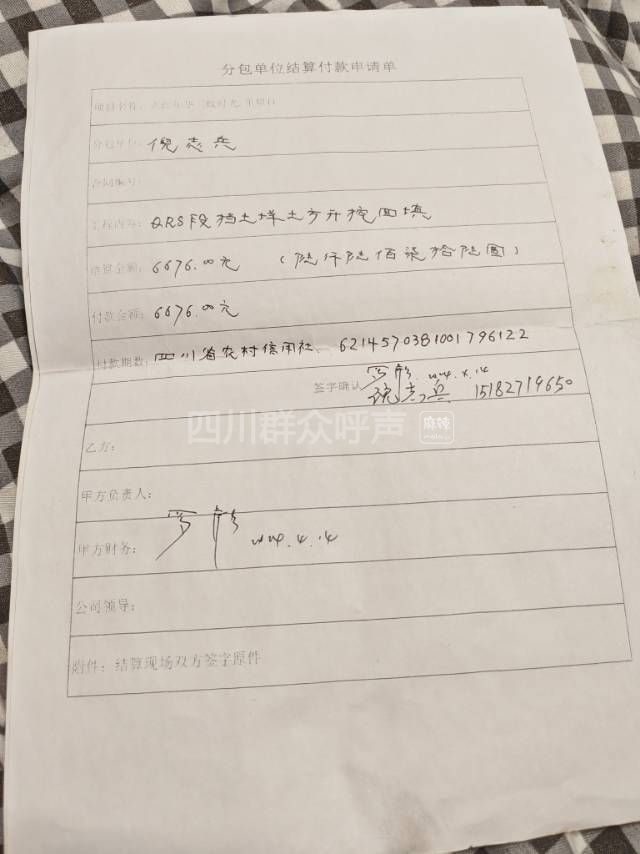 分包单位结算付款申请单
项目名称:
分包单位: 倪志兵
合同编号:
工程内容: QRS段挡土墙土方开挖回填
结算金额: 6676.00元 (陆仟陆佰柒拾陆圆)
付款金额: 6676.00元
付款期数: 四川省农村信用社、6214570381001796122
签字确认 罗 4.14
倪志兵 15182719650
四川群众呼声 麻辣
乙方:
甲方负责人:
甲方财务: 罗 4.14
公司领导:
附件: 结算现场双方签字原件